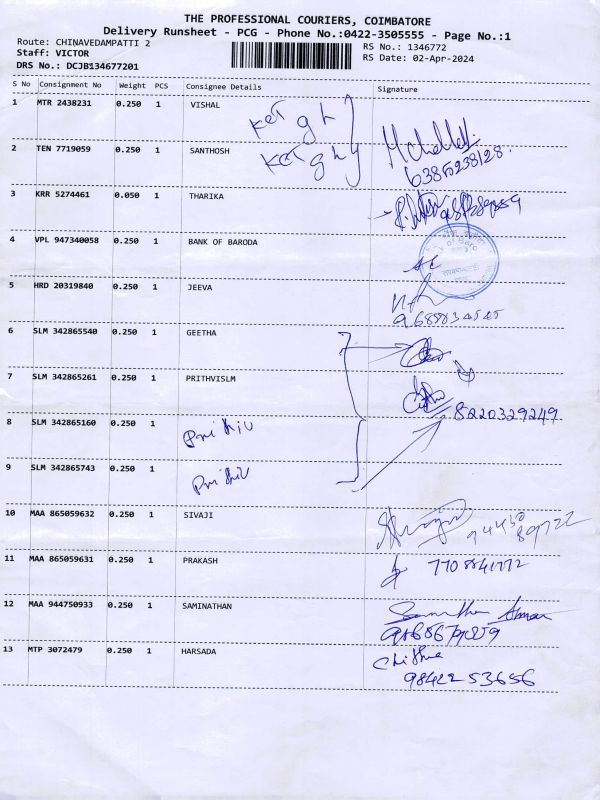 THE PROFESSIONAL COURIERS, COIMBATORE
Delivery Runsheet - PCG - Phone No.:0422-3505555 - Page No.:1
Route: CHINAVEDAMPATTI 2
RS No.: 1346772
Staff: VICTOR
RS Date: 02-Apr-2024
DRS No.: DCJB134677201
S No Consignment No Weight PCS Consignee Details Signature
1 MTR 2438231 0.250 1 VISHAL
2 TEN 7719059 0.250 1 SANTHOSH
6385238128
3 KRR 5274461 0.050 1 THARIKA
4 VPL 947340058 0.250 1 BANK OF BARODA
5 HRD 20319840 0.250 1 JEEVA
6 SLM 342865540 0.250 1 GEETHA
7 SLM 342865261 0.250 1 PRITHVISLM
8220329249
8 SLM 342865160 0.250 1 Prithiv
9 SLM 342865743 0.250 1 Prithiv
10 MAA 865059632 0.250 1 SIVAJI
11 MAA 865059631 0.250 1 PRAKASH 7708841772
12 MAA 944750933 0.250 1 SAMINATHAN
13 MTP 3072479 0.250 1 HARSADA Chithra
9842253656